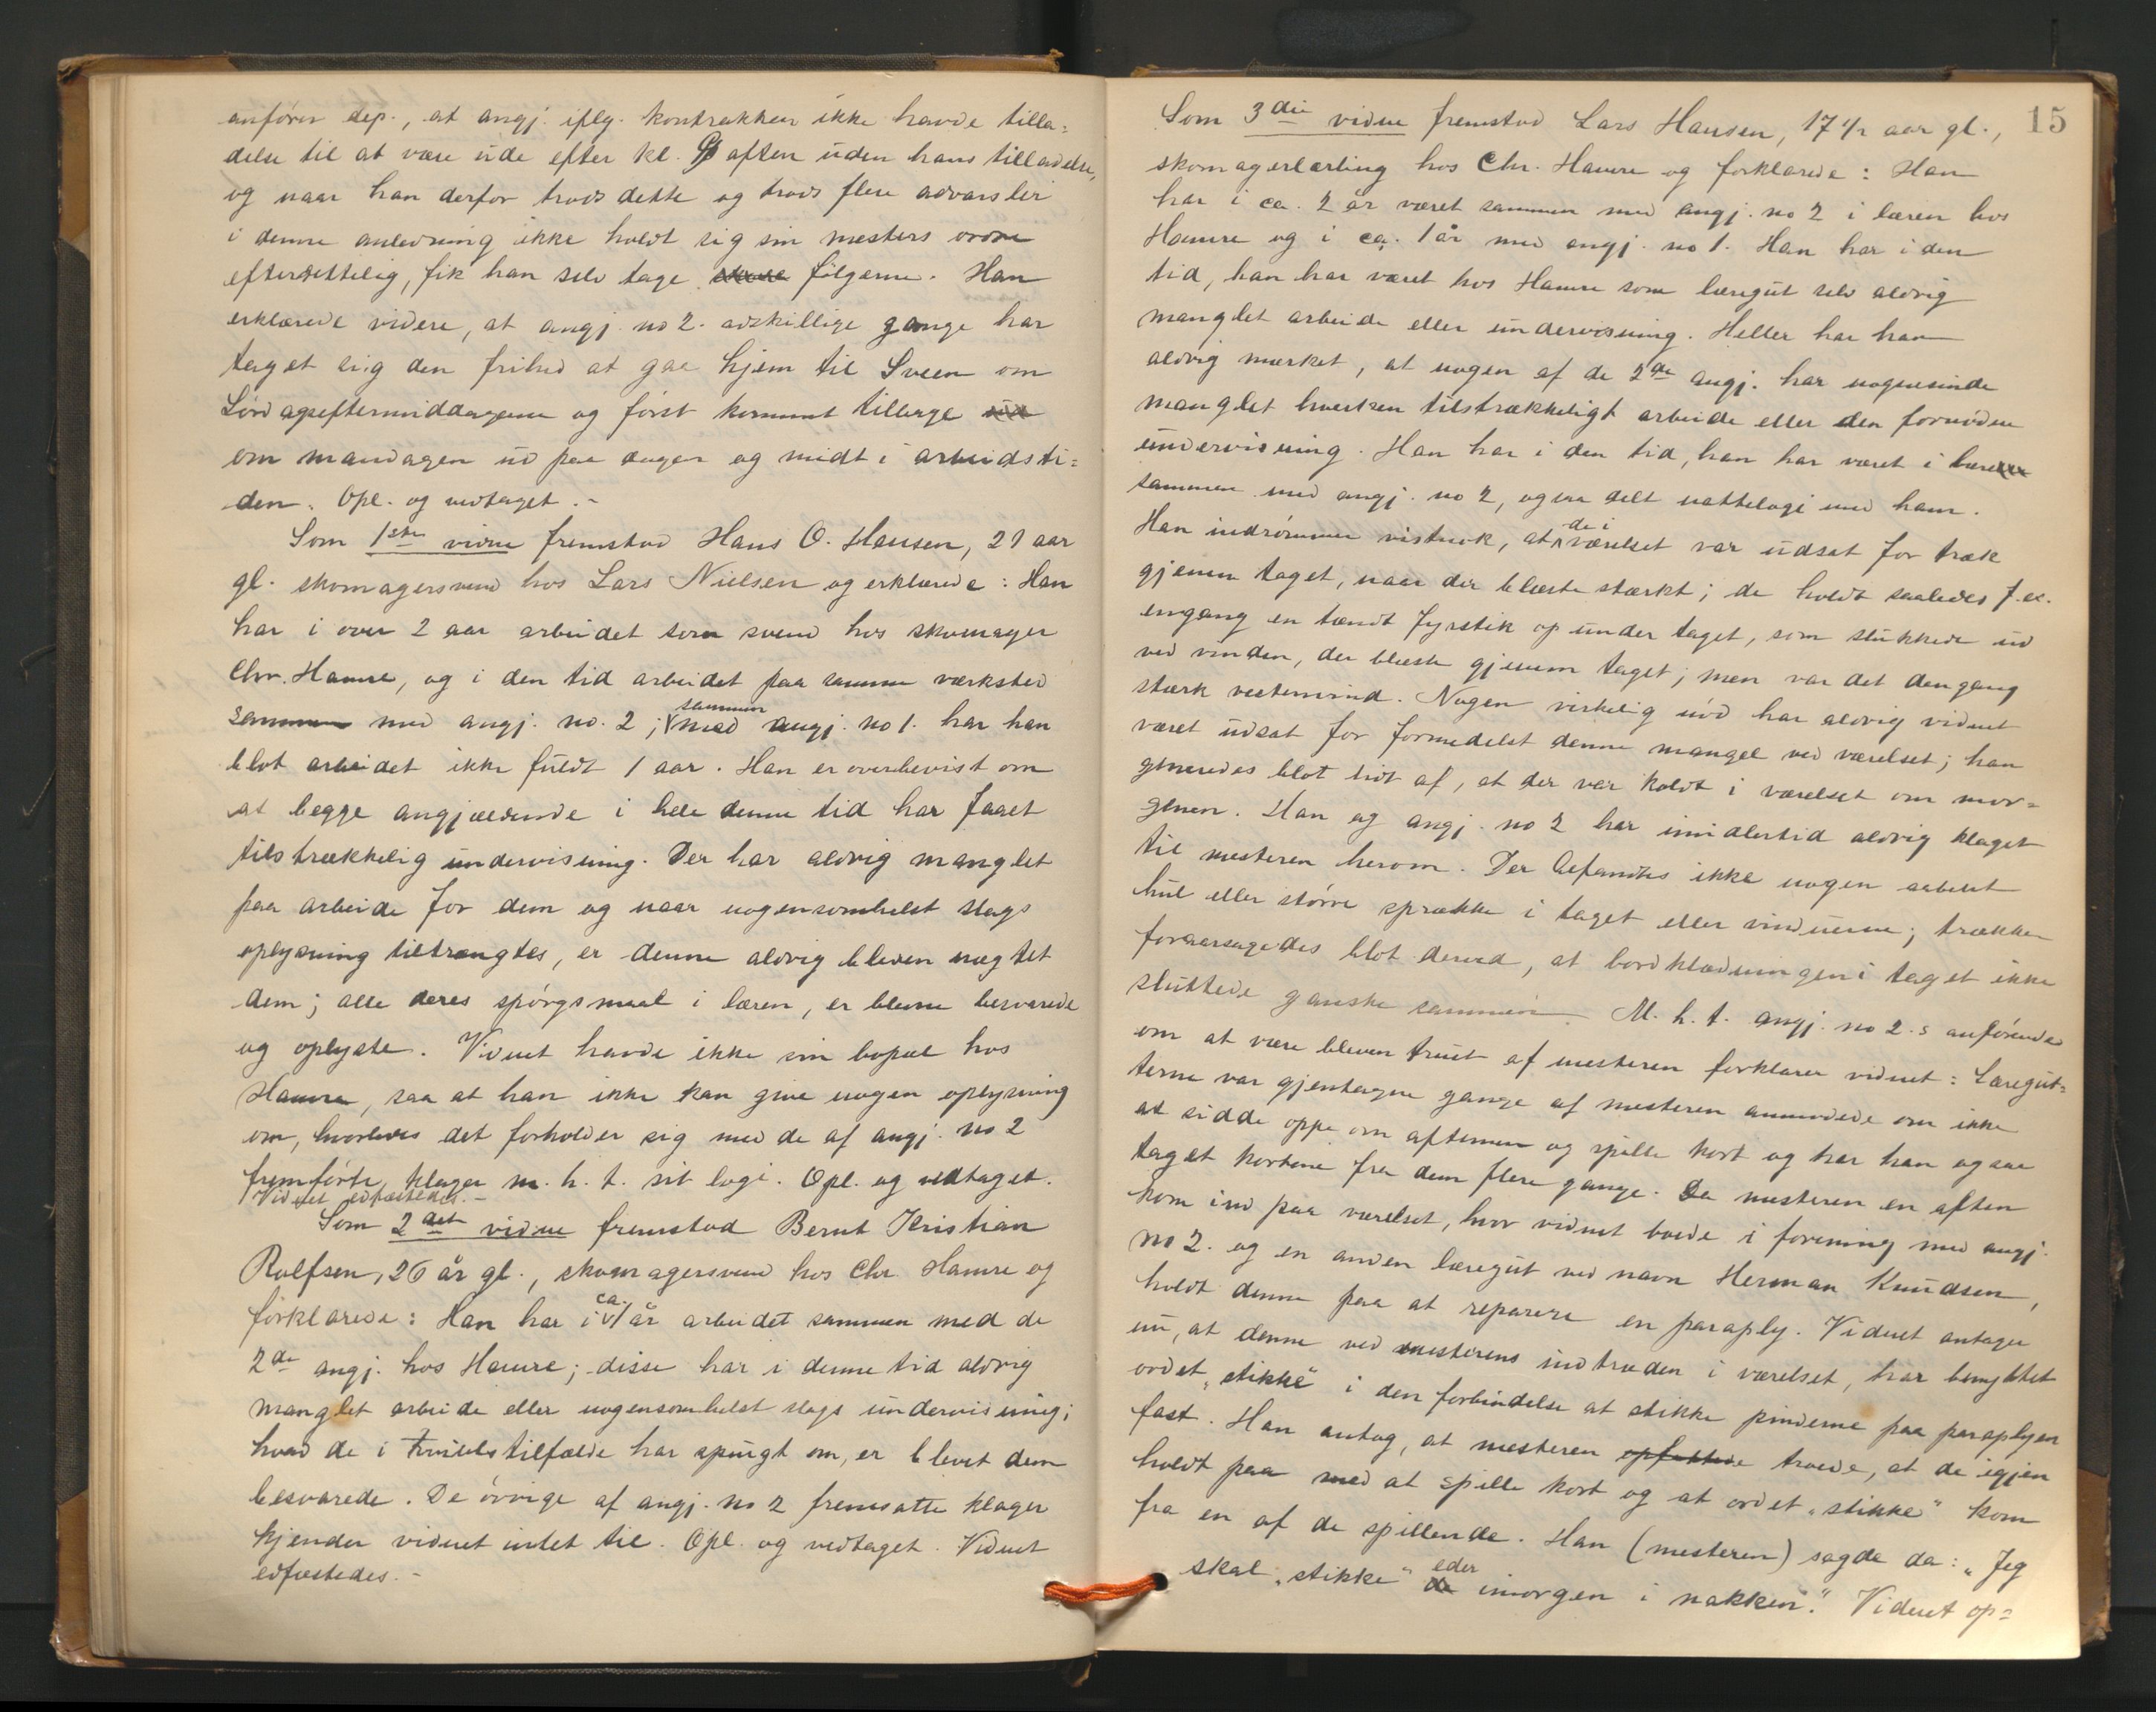 anfører dep., at angj. iflg. kontrakten ikke havde tilla=
delse til at være ude efter kl. 9 aften uden hans tilladelse,
og naar han derfor trods dette og trods flere advarsler
i denne anledning ikke holdt sig sin mesters ordre
efterrettelig, fik han selv tage følgerne. Han
erklærede videre, at angj. no 2. adskillige gange har
taget sig den frihed at gaa hjem til Sveen om
Lørdagseftermiddagene og først kommet tilbage
om mandagen ud paa dagen og midt i arbeidsti=
den. Opl. og vedtaget. -
Som 1ste vidne fremstod Hans O. Hansen, 21 aar
gl. skomagersvend hos Lars Nielsen og erklærede: Han
har i over 2 aar arbeidet som svend hos skomager
Chr. Hamre, og i den tid arbeidet paa samme værksted
sammen med angj. no. 2; sammen med angj. no 1. har han
blot arbeidet ikke fuldt 1 aar. Han er overbevist om
at begge angjældende i hele denne tid har faaet
tilstrækkelig undervisning. Der har aldrig manglet
paa arbeide for dem og naar nogensomhelst slags
oplysning tiltrængtes, er denne aldrig bleven nægtet
dem; alle deres spørgsmaal i læren, er blevne besvarede
og oplyste. Vidnet havde ikke sin bopæl hos
Hamre, saa at han ikke kan give nogen oplysning
om, hvorledes det forholder sig med de af angj. no 2
fremførte klager m. h. t. sit logi. Opl. og vedtaget.
Vidnet edfæstedes. -
Som 2det vidne fremstod Bernt Kristian
Rolfsen, 26 år gl., skomagersvend hos Chr. Hamre og
forklarede: Han har i ca. 1 år arbeidet sammen med de
2de angj. hos Hamre; disse har i denne tid aldrig
manglet arbeide eller nogensomhelst slags undervisning;
hvad de i tvivlstilfælde har spurgt om, er blevet dem
besvarede. De øvrige af angj. no 2 fremsatte klager
kjender vidnet intet til. Opl. og vedtaget. Vidnet
edfæstedes. -
15
Som 3die vidne fremstod Lars Hansen, 17 1/2 aar gl.,
skomagerlærling hos Chr. Hamre og forklarede: Han
har i ca. 2 år været sammen med angj. no 2 i læren hos
Hamre og i ca. 1 år med angj. no 1. Han har i den
tid, han har været hos Hamre som læregut selv aldrig
manglet arbeide eller undervisning. Heller har han
aldrig mærket, at nogen af de 2de angj. har nogensinde
manglet hverken tilstrækkeligt arbeide eller den fornødne
undervisning. Han har i den tid, han har været i lære
sammen med angj. no 2, ogsaa delt natteloge med ham.
Han indrømmer vistnok, at de i værelset var udsat for træk
gjennem taget, naar der blæste stærkt; de holdt saaledes f. ex.
engang en tændt fyrstik op under taget, som slukkede ud
ved vinden, der blæste gjennem taget; men var det dengang
stærk vestenvind. Nogen virkelig nød har aldrig vidnet
været udsat for formedelst denne mangel ved værelset; han
generedes blot lidt af, at der var koldt i værelset om mor=
genen. Han og angj. no 2 har imidlertid aldrig klaget
til mesteren herom. Der befandtes ikke nogen aabent
hul eller større sprække i taget eller vinduerne; trækken
foraarsagedes blot derved, at bordklædningen i taget ikke
sluttede ganske sammen. M. h. t. angj. no 2.s anførende
om at være bleven truet af mesteren forklarer vidnet: Læregut=
terne var gjentagne gange af mesteren anmodede om ikke
at sidde oppe om aftenen og spille kort og har han ogsaa
taget kortene fra dem flere gange. Da mesteren en aften
kom ind paa værelset, hvor vidnet boede i forening med angj.
no 2. og en anden læregut ved navn Herman Knudsen,
holdt denne paa at reparere en paraply. Vidnet antager
nu, at denne ved mesterens indtræden i værelset, har benyttet
ordet „stikke" i den forbindelse at stikke pinderne paa paraplyen
fast. Han antog, at mesteren opfattede troede, at de igjen
holdt paa med at spille kort og at ordet „stikke" kom
fra en af de spillende. Han (mesteren) sagde da: „Jeg
skal „stikke" eder imorgen i nakken." Vidnet op=